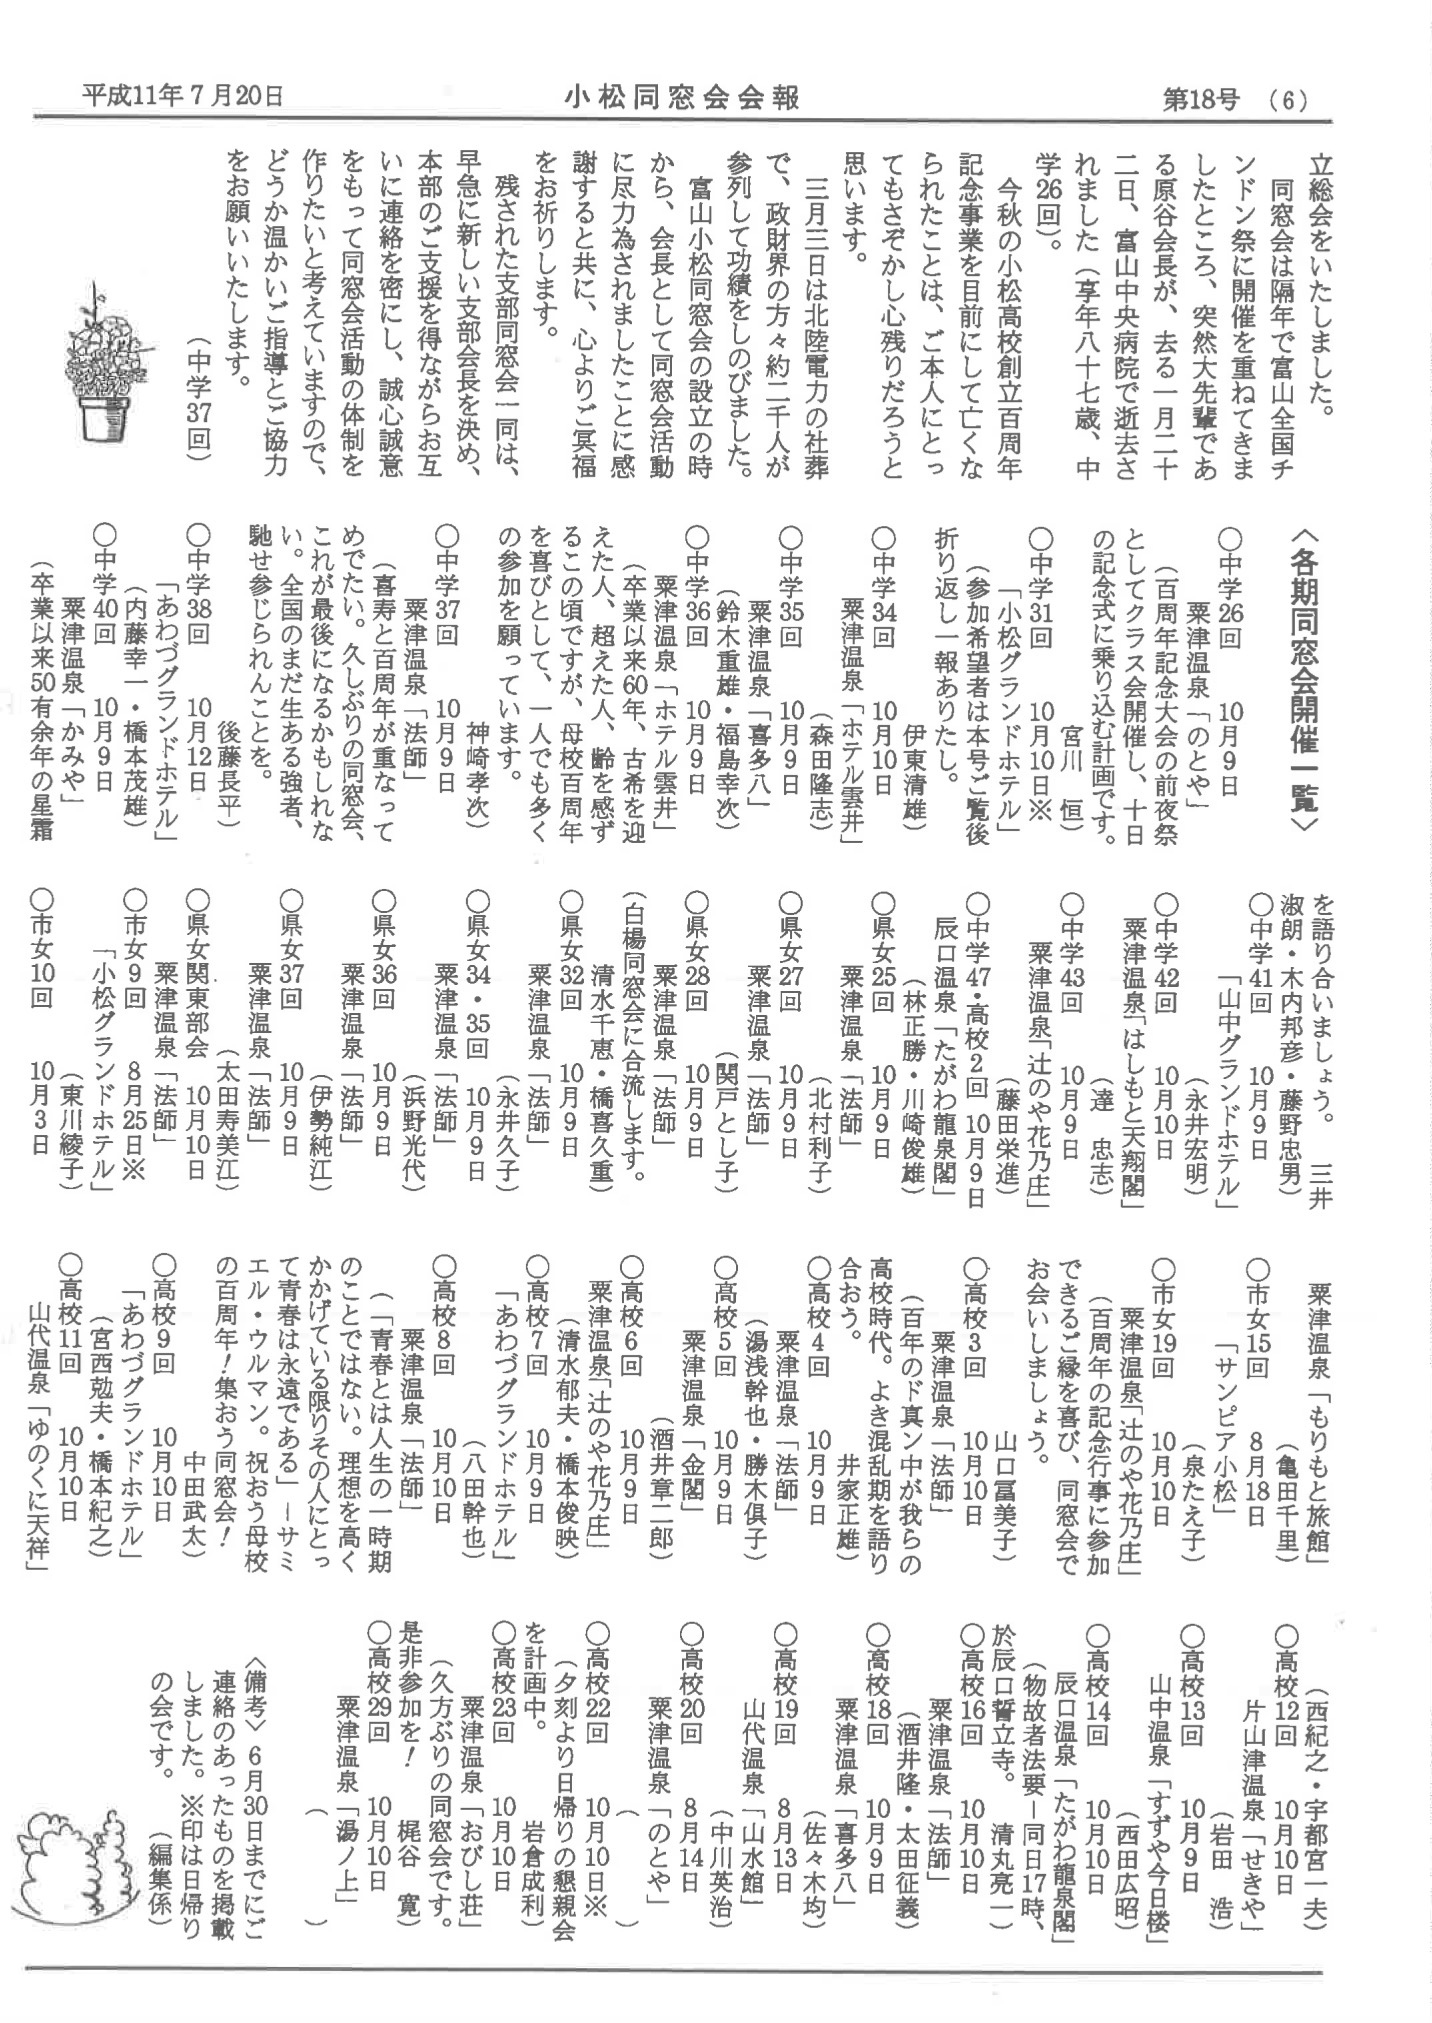 平成11年7月20日
小松同窓会会報
第18号 (6)
立総会をいたしました。
同窓会は隔年で富山全国チ
ンドン祭に開催を重ねてきま
したところ、突然大先輩であ
る原谷会長が、去る一月二十
二日、富山中央病院で逝去さ
れました（享年八十七歳、中
学26回）。
今秋の小松高校創立百周年
記念事業を目前にして亡くな
られたことは、ご本人にとっ
てもさぞかし心残りだろうと
思います。
三月三日は北陸電力の社葬
で、政財界の方々約二千人が
参列して功績をしのびました。
富山小松同窓会の設立の時
から、会長として同窓会活動
に尽力為されましたことに感
謝すると共に、心よりご冥福
をお祈りします。
残された支部同窓会一同は、
早急に新しい支部会長を決め、
本部のご支援を得ながらお互
いに連絡を密にし、誠心誠意
をもって同窓会活動の体制を
作りたいと考えていますので、
どうか温かいご指導とご協力
をお願いいたします。
（中学37回）
〈各期同窓会開催一覧〉
〇中学26回 10月9日
粟津温泉「のとや」
（百周年記念大会の前夜祭
としてクラス会開催し、十日
の記念式に乗り込む計画です。
宮川 恒）
〇中学31回 10月10日※
「小松グランドホテル」
（参加希望者は本号ご覧後
折り返し一報ありたし。
伊東清雄）
〇中学34回 10月10日
粟津温泉「ホテル雲井」
（森田隆志）
〇中学35回 10月9日
粟津温泉「喜多八」
（鈴木重雄・福島幸次）
〇中学36回 10月9日
粟津温泉「ホテル雲井」
（卒業以来60年、古希を迎
えた人、超えた人、齢を感ず
るこの頃ですが、母校百周年
を喜びとして、一人でも多く
の参加を願っています。
神崎孝次）
〇中学37回 10月9日
粟津温泉「法師」
（喜寿と百周年が重なって
めでたい。久しぶりの同窓会、
これが最後になるかもしれな
い。全国のまだ生ある強者、
馳せ参じられんことを。
後藤長平）
〇中学38回 10月12日
「あわづグランドホテル」
（内藤幸一・橋本茂雄）
〇中学40回 10月9日
粟津温泉「かみや」
（卒業以来50有余年の星霜
を語り合いましょう。 三井
淑朗・木内邦彦・藤野忠男）
〇中学41回 10月9日
「山中グランドホテル」
（永井宏明）
〇中学42回 10月10日
粟津温泉「はしもと天翔閣」
（達 忠志）
〇中学43回 10月9日
粟津温泉「辻のや花乃庄」
（藤田栄進）
〇中学47・高校2回 10月9日
辰口温泉「たがわ龍泉閣」
（林正勝・川崎俊雄）
〇県女25回 10月9日
粟津温泉「法師」
（北村利子）
〇県女27回 10月9日
粟津温泉「法師」
（関戸とし子）
〇県女28回 10月9日
粟津温泉「法師」
（白楊同窓会に合流します。
清水千恵・橋喜久重）
〇県女32回 10月9日
粟津温泉「法師」
（永井久子）
〇県女34・35回 10月9日
粟津温泉「法師」
（浜野光代）
〇県女36回 10月9日
粟津温泉「法師」
（伊勢純江）
〇県女37回 10月9日
粟津温泉「法師」
（太田寿美江）
〇県女関東部会 10月10日
粟津温泉「法師」
〇市女9回 8月25日※
「小松グランドホテル」
（東川綾子）
〇市女10回 10月3日
粟津温泉「もりもと旅館」
（亀田千里）
〇市女15回 8月18日
「サンピア小松」
（泉たえ子）
〇市女19回 10月10日
粟津温泉「辻のや花乃庄」
（百周年の記念行事に参加
できるご縁を喜び、同窓会で
お会いしましょう。
山口冨美子）
〇高校3回 10月10日
粟津温泉「法師」
（百年のド真ン中が我らの
高校時代。よき混乱期を語り
合おう。 井家正雄）
〇高校4回 10月9日
粟津温泉「法師」
（湯浅幹也・勝木倶子）
〇高校5回 10月9日
粟津温泉「金閣」
（酒井章二郎）
〇高校6回 10月9日
粟津温泉「辻のや花乃庄」
（清水郁夫・橋本俊映）
〇高校7回 10月9日
「あわづグランドホテル」
（八田幹也）
〇高校8回 10月10日
粟津温泉「法師」
（「青春とは人生の一時期
のことではない。理想を高く
かかげている限りその人にとっ
て青春は永遠である」－サミ
エル・ウルマン。祝おう母校
の百周年！集おう同窓会！
中田武太）
〇高校9回 10月10日
「あわづグランドホテル」
（宮西勉夫・橋本紀之）
〇高校11回 10月10日
山代温泉「ゆのくに天祥」
（西紀之・宇都宮一夫）
〇高校12回 10月10日
片山津温泉「せきや」
（岩田 浩）
〇高校13回 10月9日
山中温泉「すずや今日楼」
（西田広昭）
〇高校14回 10月10日
辰口温泉「たがわ龍泉閣」
（物故者法要－同日17時、
於辰口誓立寺。 清丸亮一）
〇高校16回 10月10日
粟津温泉「法師」
（酒井隆・太田征義）
〇高校18回 10月9日
粟津温泉「喜多八」
（佐々木均）
〇高校19回 8月13日
山代温泉「山水館」
（中川英治）
〇高校20回 8月14日
粟津温泉「のとや」
（ ）
〇高校22回 10月10日※
（夕刻より日帰りの懇親会
を計画中。 岩倉成利）
〇高校23回 10月10日
粟津温泉「おびし荘」
（久方ぶりの同窓会です。
是非参加を！ 梶谷 寛）
〇高校29回 10月10日
粟津温泉「湯ノ上」
（ ）
〈備考〉6月30日までにご
連絡のあったものを掲載
しました。※印は日帰り
の会です。 （編集係）